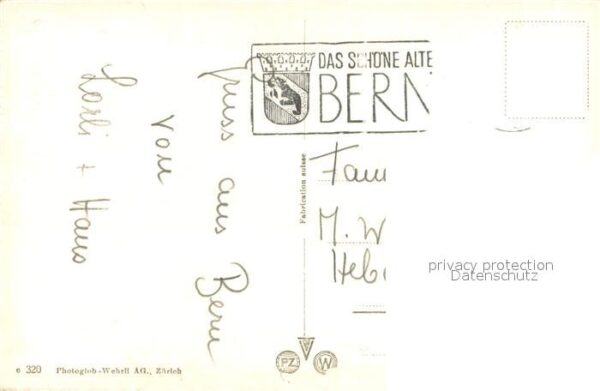 Gruss aus Bern
von
Lorli + Hans
DAS SCHÖNE ALTE
BERN
Fabrication suisse
Fam
M. W
Heb
privacy protection
Datenschutz
PZ W
e 320 Photoglob-Wehrli AG., Zürich